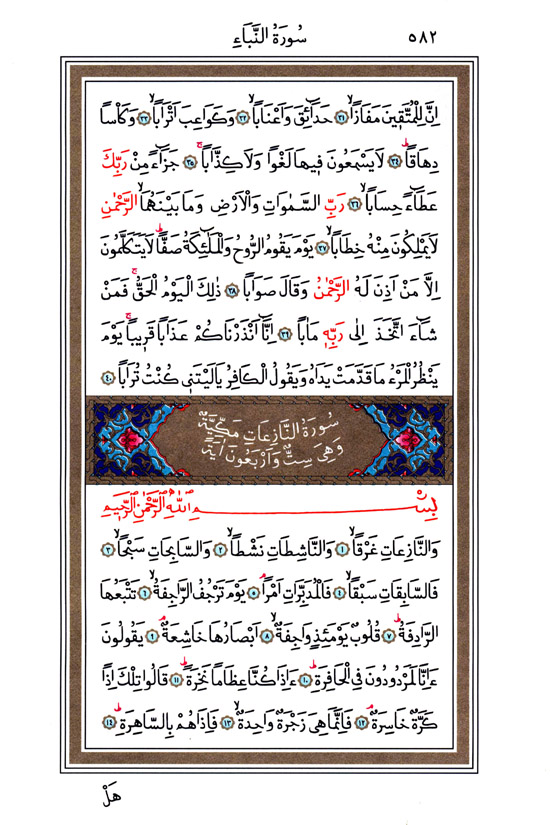 سُورَةُ النَّبَاءِ ٥٨٢
اِنَّ لِلْمُتَّقٖينَ مَفَازًاۙ ﴿٣١﴾ حَدَٓائِقَ وَاَعْنَابًاۙ ﴿٣٢﴾ وَكَوَاعِبَ اَتْرَابًاۙ ﴿٣٣﴾ وَكَاْسًا
دِهَاقًاۜ ﴿٣٤﴾ لَا يَسْمَعُونَ فٖيهَا لَغْوًا وَلَا كِذَّابًاۚ ﴿٣٥﴾ جَزَٓاءً مِنْ رَبِّكَ
عَطَٓاءً حِسَابًاۙ ﴿٣٦﴾ رَبِّ السَّمٰوَاتِ وَالْاَرْضِ وَمَا بَيْنَهُمَا الرَّحْمٰنِ
لَا يَمْلِكُونَ مِنْهُ خِطَابًاۚ ﴿٣٧﴾ يَوْمَ يَقُومُ الرُّوحُ وَالْمَلٰٓئِكَةُ صَفًّاۜ لَا يَتَكَلَّمُونَ
اِلَّا مَنْ اَذِنَ لَهُ الرَّحْمٰنُ وَقَالَ صَوَابًا ﴿٣٨﴾ ذٰلِكَ الْيَوْمُ الْحَقُّۚ فَمَنْ
شَٓاءَ اتَّخَذَ اِلٰى رَبِّهٖ مَاٰبًا ﴿٣٩﴾ اِنَّٓا اَنْذَرْنَاكُمْ عَذَابًا قَرٖيبًاۚ يَوْمَ
يَنْظُرُ الْمَرْءُ مَا قَدَّمَتْ يَدَاهُ وَيَقُولُ الْكَافِرُ يَا لَيْتَنٖي كُنْتُ تُرَابًا ﴿٤٠﴾
سُورَةُ النَّازِعَاتِ مَكِّيَّةٌ
وَهِيَ سِتٌّ وَاَرْبَعُونَ اٰيَةً
بِسْمِ اللّٰهِ الرَّحْمٰنِ الرَّحٖيمِ
وَالنَّازِعَاتِ غَرْقًاۙ ﴿١﴾ وَالنَّاشِطَاتِ نَشْطًاۙ ﴿٢﴾ وَالسَّابِحَاتِ سَبْحًاۙ ﴿٣﴾
فَالسَّابِقَاتِ سَبْقًاۙ ﴿٤﴾ فَالْمُدَبِّرَاتِ اَمْرًاۢ ﴿٥﴾ يَوْمَ تَرْجُفُ الرَّاجِفَةُۙ ﴿٦﴾ تَتْبَعُهَا
الرَّادِفَةُۜ ﴿٧﴾ قُلُوبٌ يَوْمَئِذٍ وَاجِفَةٌۙ ﴿٨﴾ اَبْصَارُهَا خَاشِعَةٌۢ ﴿٩﴾ يَقُولُونَ
ءَاِنَّا لَمَرْدُودُونَ فِي الْحَافِرَةِۜ ﴿١٠﴾ ءَاِذَا كُنَّا عِظَامًا نَخِرَةًۜ ﴿١١﴾ قَالُوا تِلْكَ اِذًا
كَرَّةٌ خَاسِرَةٌۢ ﴿١٢﴾ فَاِنَّمَا هِيَ زَجْرَةٌ وَاحِدَةٌۙ ﴿١٣﴾ فَاِذَا هُمْ بِالسَّاهِرَةِۜ ﴿١٤﴾
هَلْ